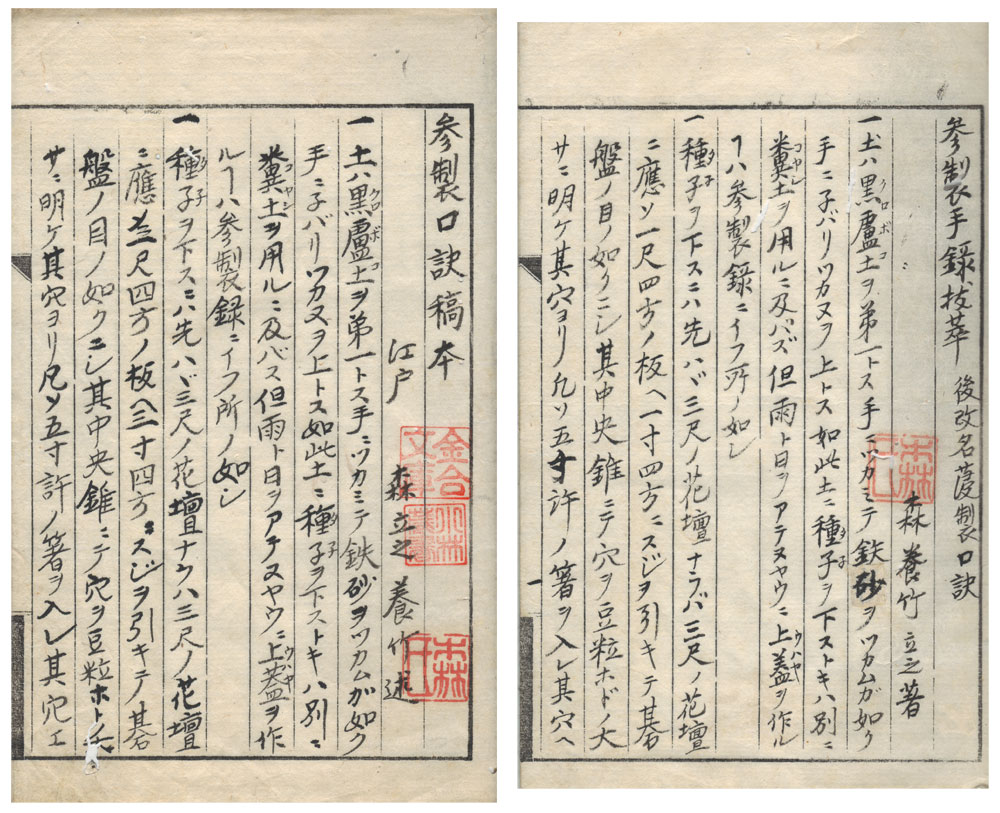 参製手録抜萃 後改名蓡製口訣
森養竹立之著
一土ハ黒盧土ヲ第一トス手ニツカミテ鉄砂ヲツカムガ如ク
クロボコ
手ニ子バリツカヌヲ上トス如此土ニ種子ヲ下ストキハ別ニ
タ子
糞土ヲ用ルニ及バズ但雨ト日ヲアテヌヤウニ上蓋ヲ作ル
コヤシ
ウハヤ
ヿハ参製録ニイフ所ノ如し
一種子ヲ下スニハ先ハヾ三尺ノ花壇ナラバ三尺ノ花壇
タ子
ニ應ソ一尺四方ノ板ヘ一寸四方ニスジヲ引キテ碁
盤ノ目ノ如クニシ其中央錐ニテ穴ヲ豆粒ホドノ大
サニ明ケ其穴ヨリ凡ソ五寸許ノ箸ヲ入レ其穴ヘ
一
参製口訣稿本
江戸 森立之 養竹述
一土ハ黒盧土ヲ第一トス手ニツカミテ鉄砂ヲツカムガ如ク
クロボコ
手ニ子バリツカヌヲ上トス如此土ニ種子ヲ下ストキハ別ニ
タ子
糞土ヲ用ルニ及バス但雨ト日ヲアテヌヤウニ上蓋ヲ作
コヤシ
ウハヤ
ルヿハ参製録ニイフ所ノ如し
一種子ヲ下スニハ先ハヾ三尺ノ花壇ナラハ三尺ノ花壇
タ子
ニ應 三尺四方ノ板ヘ三寸四方ニスジヲ引キテ碁
盤ノ目ノ如クニシ其中央錐ニテ穴ヲ豆粒ホトノ大
サニ明ケ其穴ヨリ凡ソ五寸許ノ箸ヲ入レ其穴エ
森氏
森氏